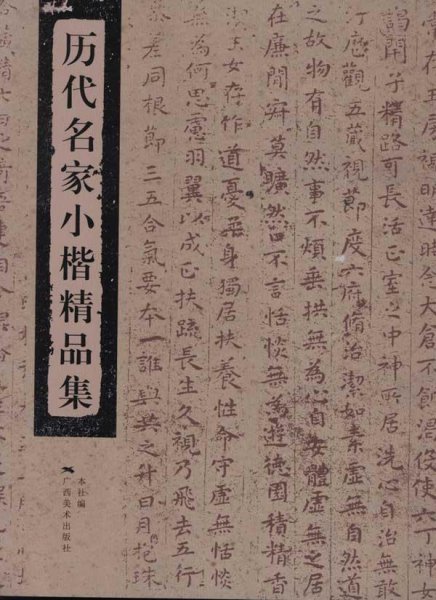 历代名家小楷精品集
本社编
广西美术出版社
在玉房神明達時念大倉不飢渴役使六丁神女
謁閉子精路可長活正室之中神所居洗心自治無敢
汙歷觀五藏視節度六府脩治潔如素虛無自然道
之故物有自然事不煩垂拱無為心自安體虛無之居
在廉間寂莫曠然口不言恬惔無為遊德園積精香
潔玉女存作道憂身獨居扶養性命守虛無恬惔
無為何思慮羽翼以成正扶疏長生久視乃飛去五行
參差同根節三五合氣要本一誰與共之升日月抱珠